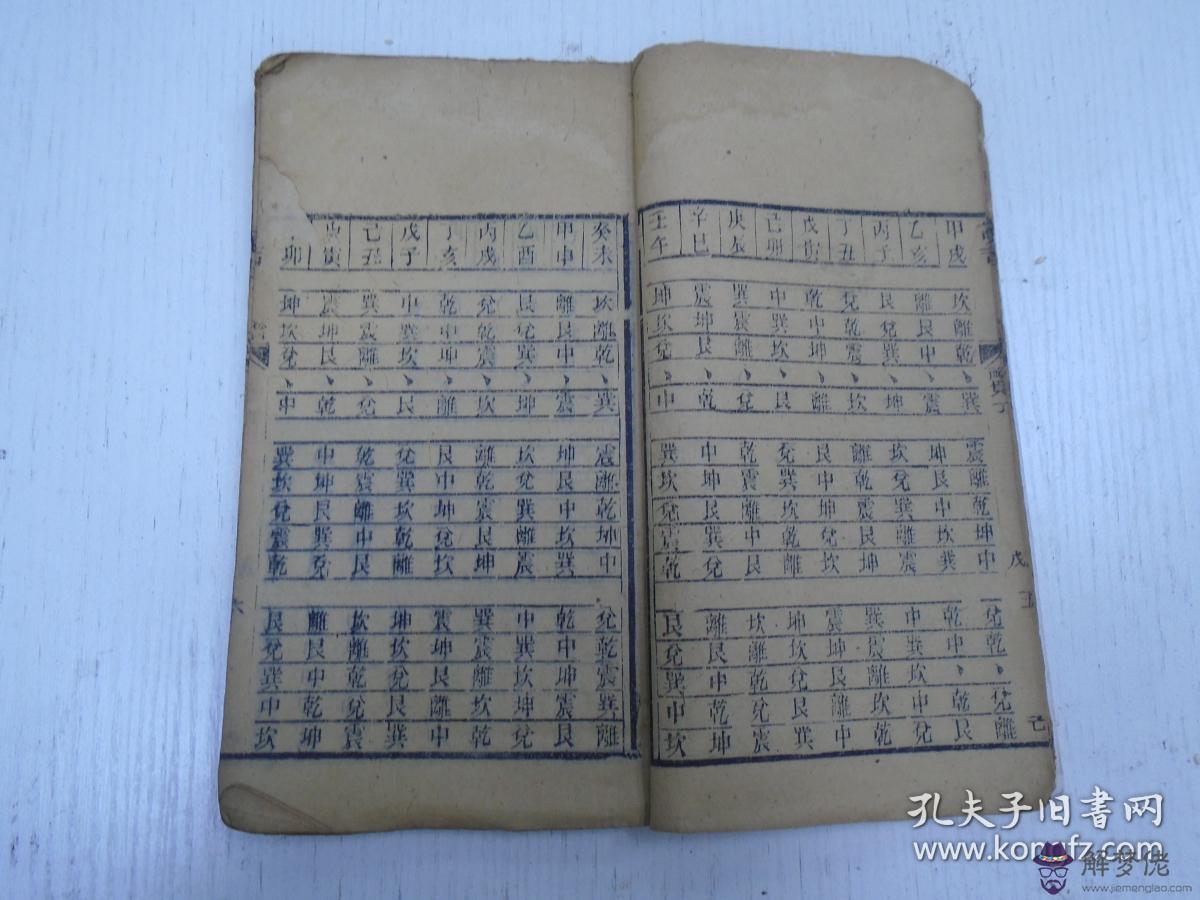 甲戌 坎離乾、巽 震離乾坤中 兌乾、兌離
乙亥 離艮中、震 坤艮中坎巽 乾中、乾艮
丙子 艮兌巽、坤 坎兌巽離震 中巽坎中兌
丁丑 兌乾震、坎 離乾震艮坤 巽震離坎乾
戊寅 乾中坤、離 艮中坤兌坎 震坤艮離中
己卯 中巽坎、艮 兌巽坎乾離 坤坎兌艮巽
庚辰 巽震離、兌 乾震離中艮 坎離乾兌震
辛巳 震坤艮、乾 中坤艮巽兌 離艮中乾坤
壬午 坤坎兌、中 巽坎兌震乾 艮兌巽中坎
癸未 坎離乾、巽 震離乾坤中 兌乾震巽離
甲申 離艮中、震 坤艮中坎巽 乾中坤震艮
乙酉 艮兌巽、坤 坎兌巽離震 中巽坎坤兌
丙戌 兌乾震、坎 離乾震艮坤 巽震離坎乾
丁亥 乾中坤、離 艮中坤兌坎 震坤艮離中
戊子 中巽坎、艮 兌巽坎乾離 坤坎兌艮巽
己丑 巽震離、兌 乾震離中艮 坎離乾兌震
庚寅 震坤艮、乾 中坤艮巽兌 離艮中乾坤
卯 坤坎兌、中 巽坎兌震乾 艮兌巽中坎
戊
己
孔夫子旧书网
www.kongfz.com
解梦佬
www.jiemenglao.com